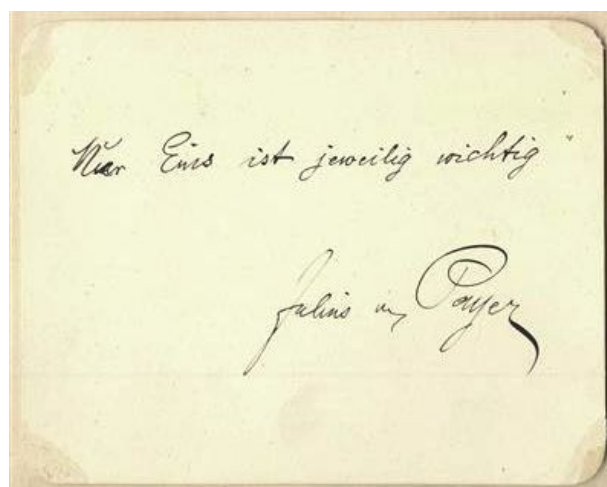 Nur Eins ist jeweilig wichtig"
Julius v. Payer